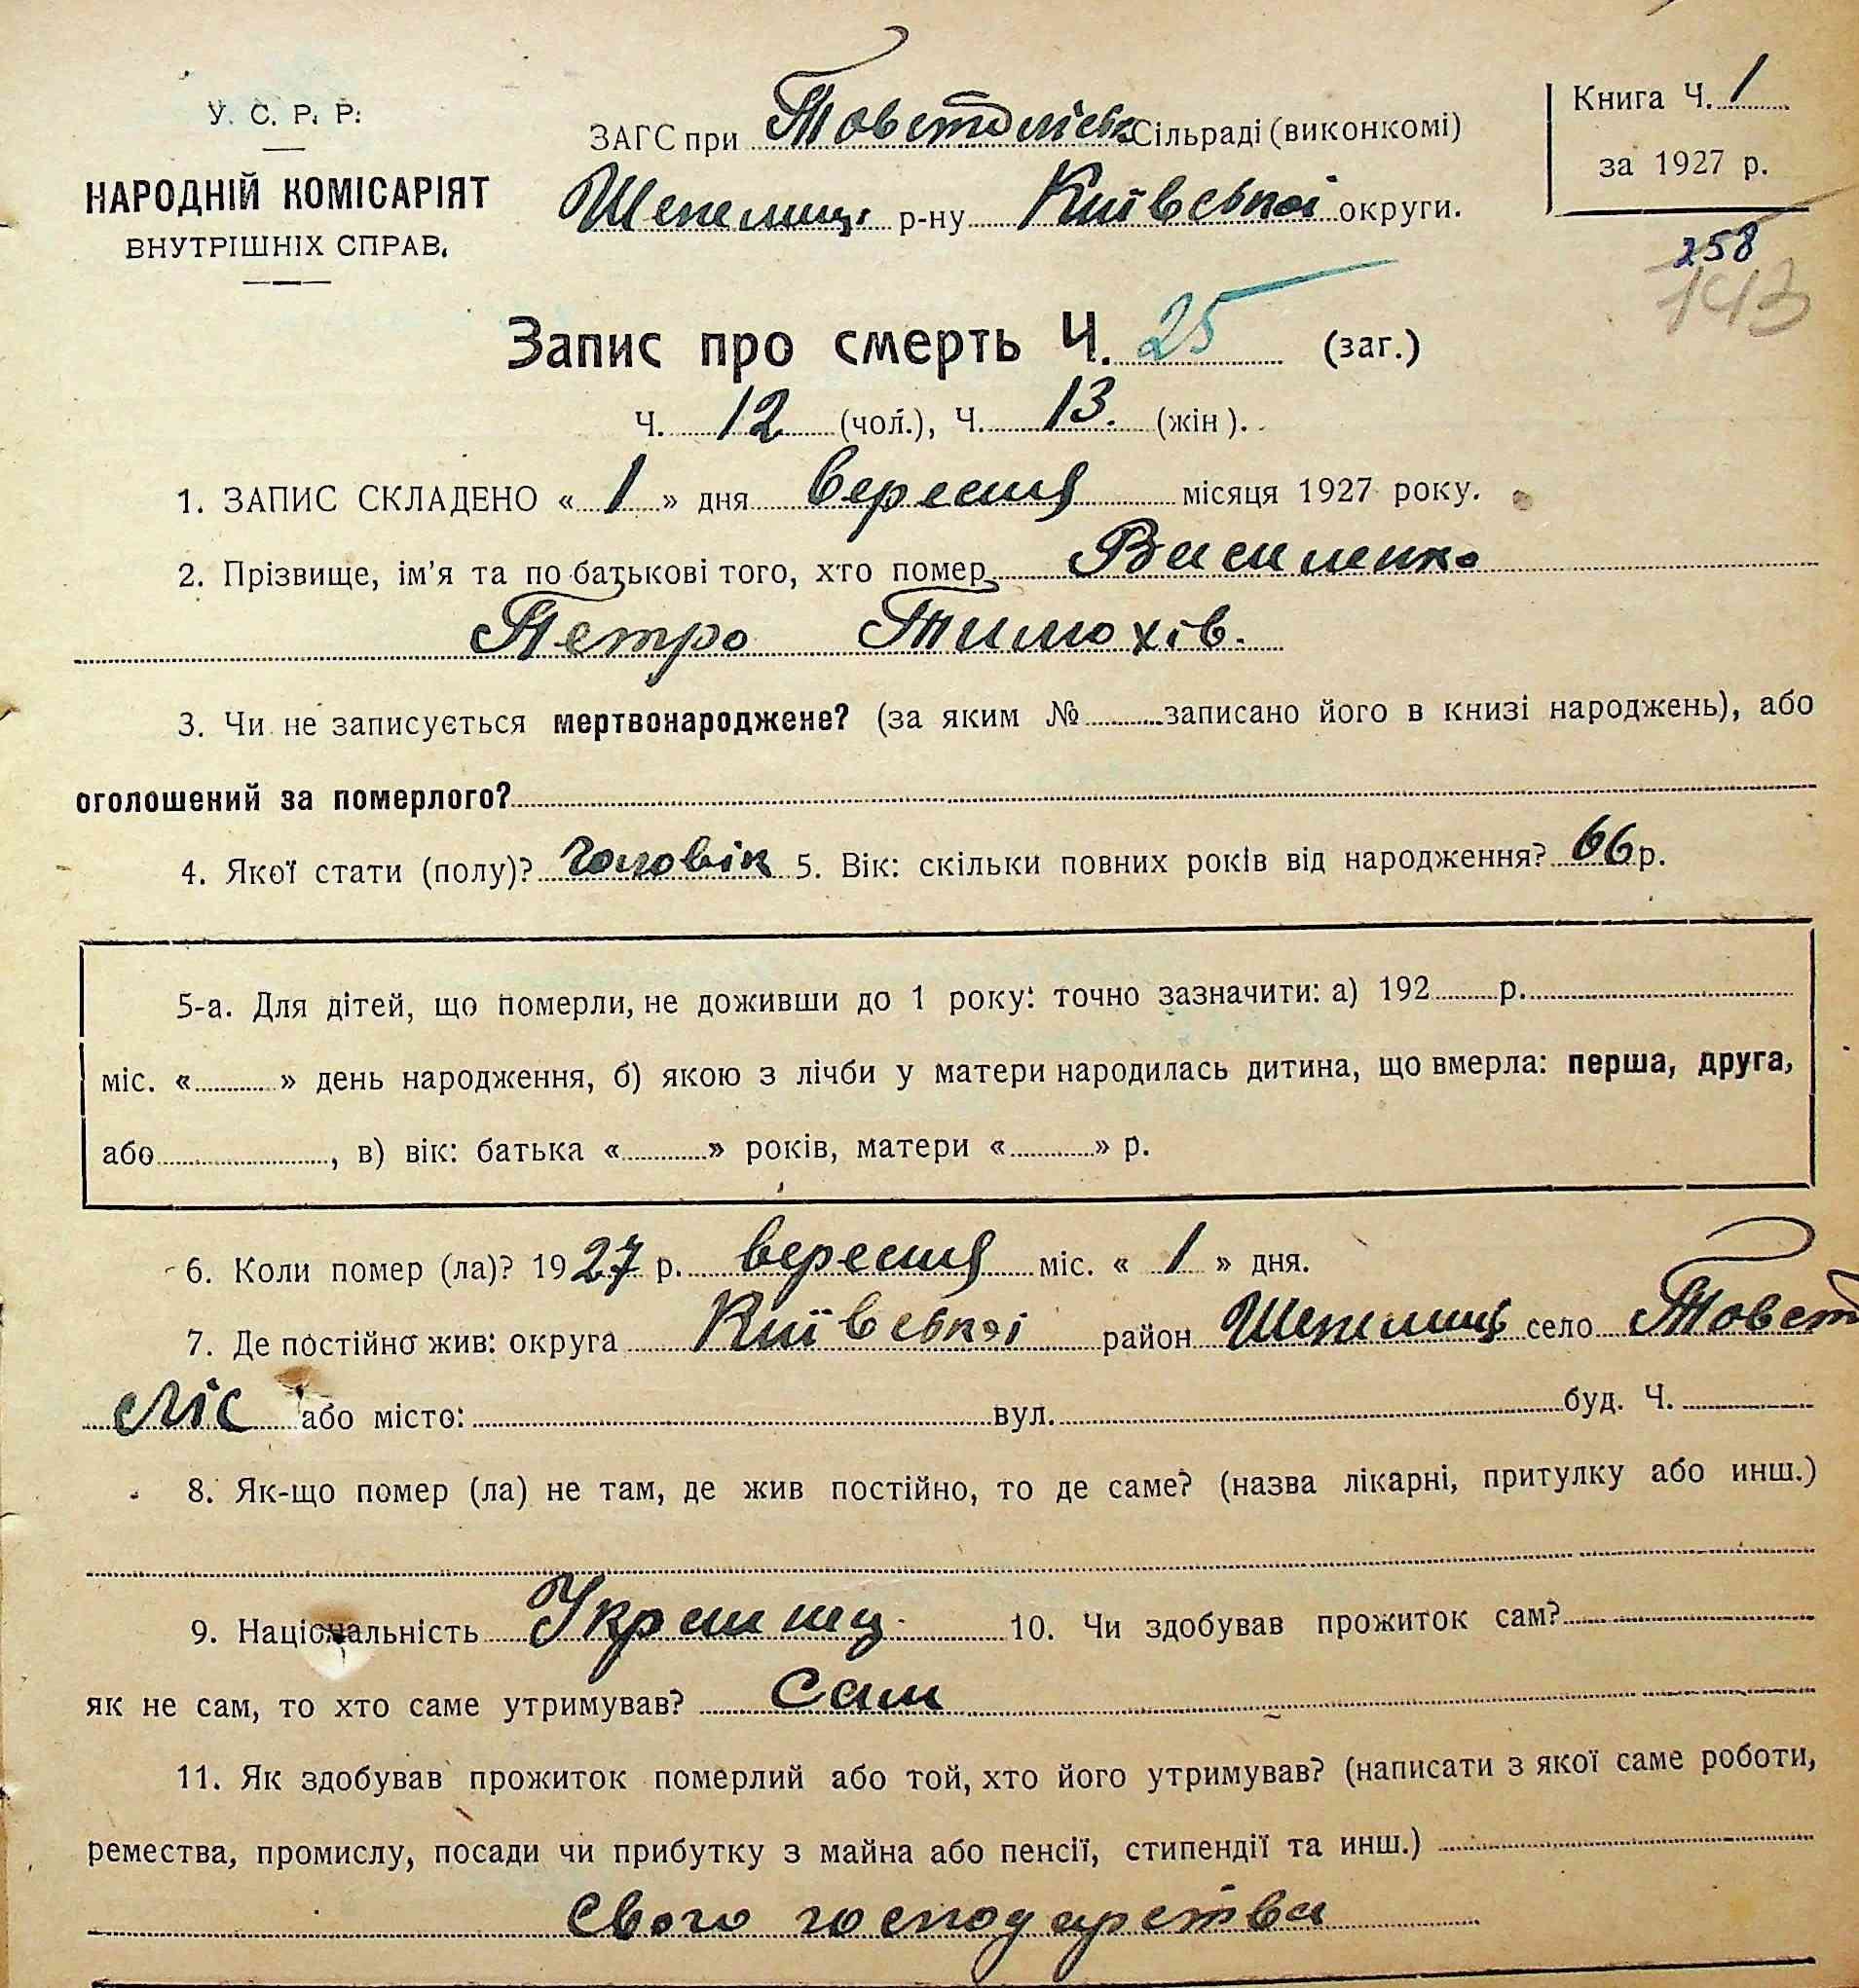 У. С. Р. Р.
НАРОДНІЙ КОМІСАРІЯТ
ВНУТРІШНІХ СПРАВ.
ЗАГС при Товстоліськ Сільраді (виконкомі)
Шепелиц. р-ну Київської округи.
Книга Ч. 1
за 1927 р.
258
143
Запис про смерть Ч. 25 (заг.)
Ч. 12 (чол.), Ч. 13. (жін).
1. ЗАПИС СКЛАДЕНО « 1 » дня вересня місяця 1927 року.
2. Прізвище, ім'я та по батькові того, хто помер Василенко
Петро Тимохів.
3. Чи не записується мертвонароджене? (за яким № записано його в книзі народжень), або
оголошений за померлого?
4. Якої стати (полу)? Чоловік 5. Вік: скільки повних років від народження? 66 р.
5-а. Для дітей, що померли, не доживши до 1 року: точно зазначити: а) 192 р.
міс. « » день народження, б) якою з лічби у матери народилась дитина, що вмерла: перша, друга,
або , в) вік: батька « » років, матери « » р.
6. Коли помер (ла)? 1927 р. вересня міс. « 1 » дня.
7. Де постійно жив: округа Київської район Шепелиц село Товст
ліс або місто: вул. буд. Ч.
8. Як-що помер (ла) не там, де жив постійно, то де саме? (назва лікарні, притулку або инш.)
9. Національність Українец 10. Чи здобував прожиток сам?
як не сам, то хто саме утримував? Сам
11. Як здобував прожиток померлий або той, хто його утримував? (написати з якої саме роботи,
ремества, промислу, посади чи прибутку з майна або пенсії, стипендії та инш.)
Свого господарства